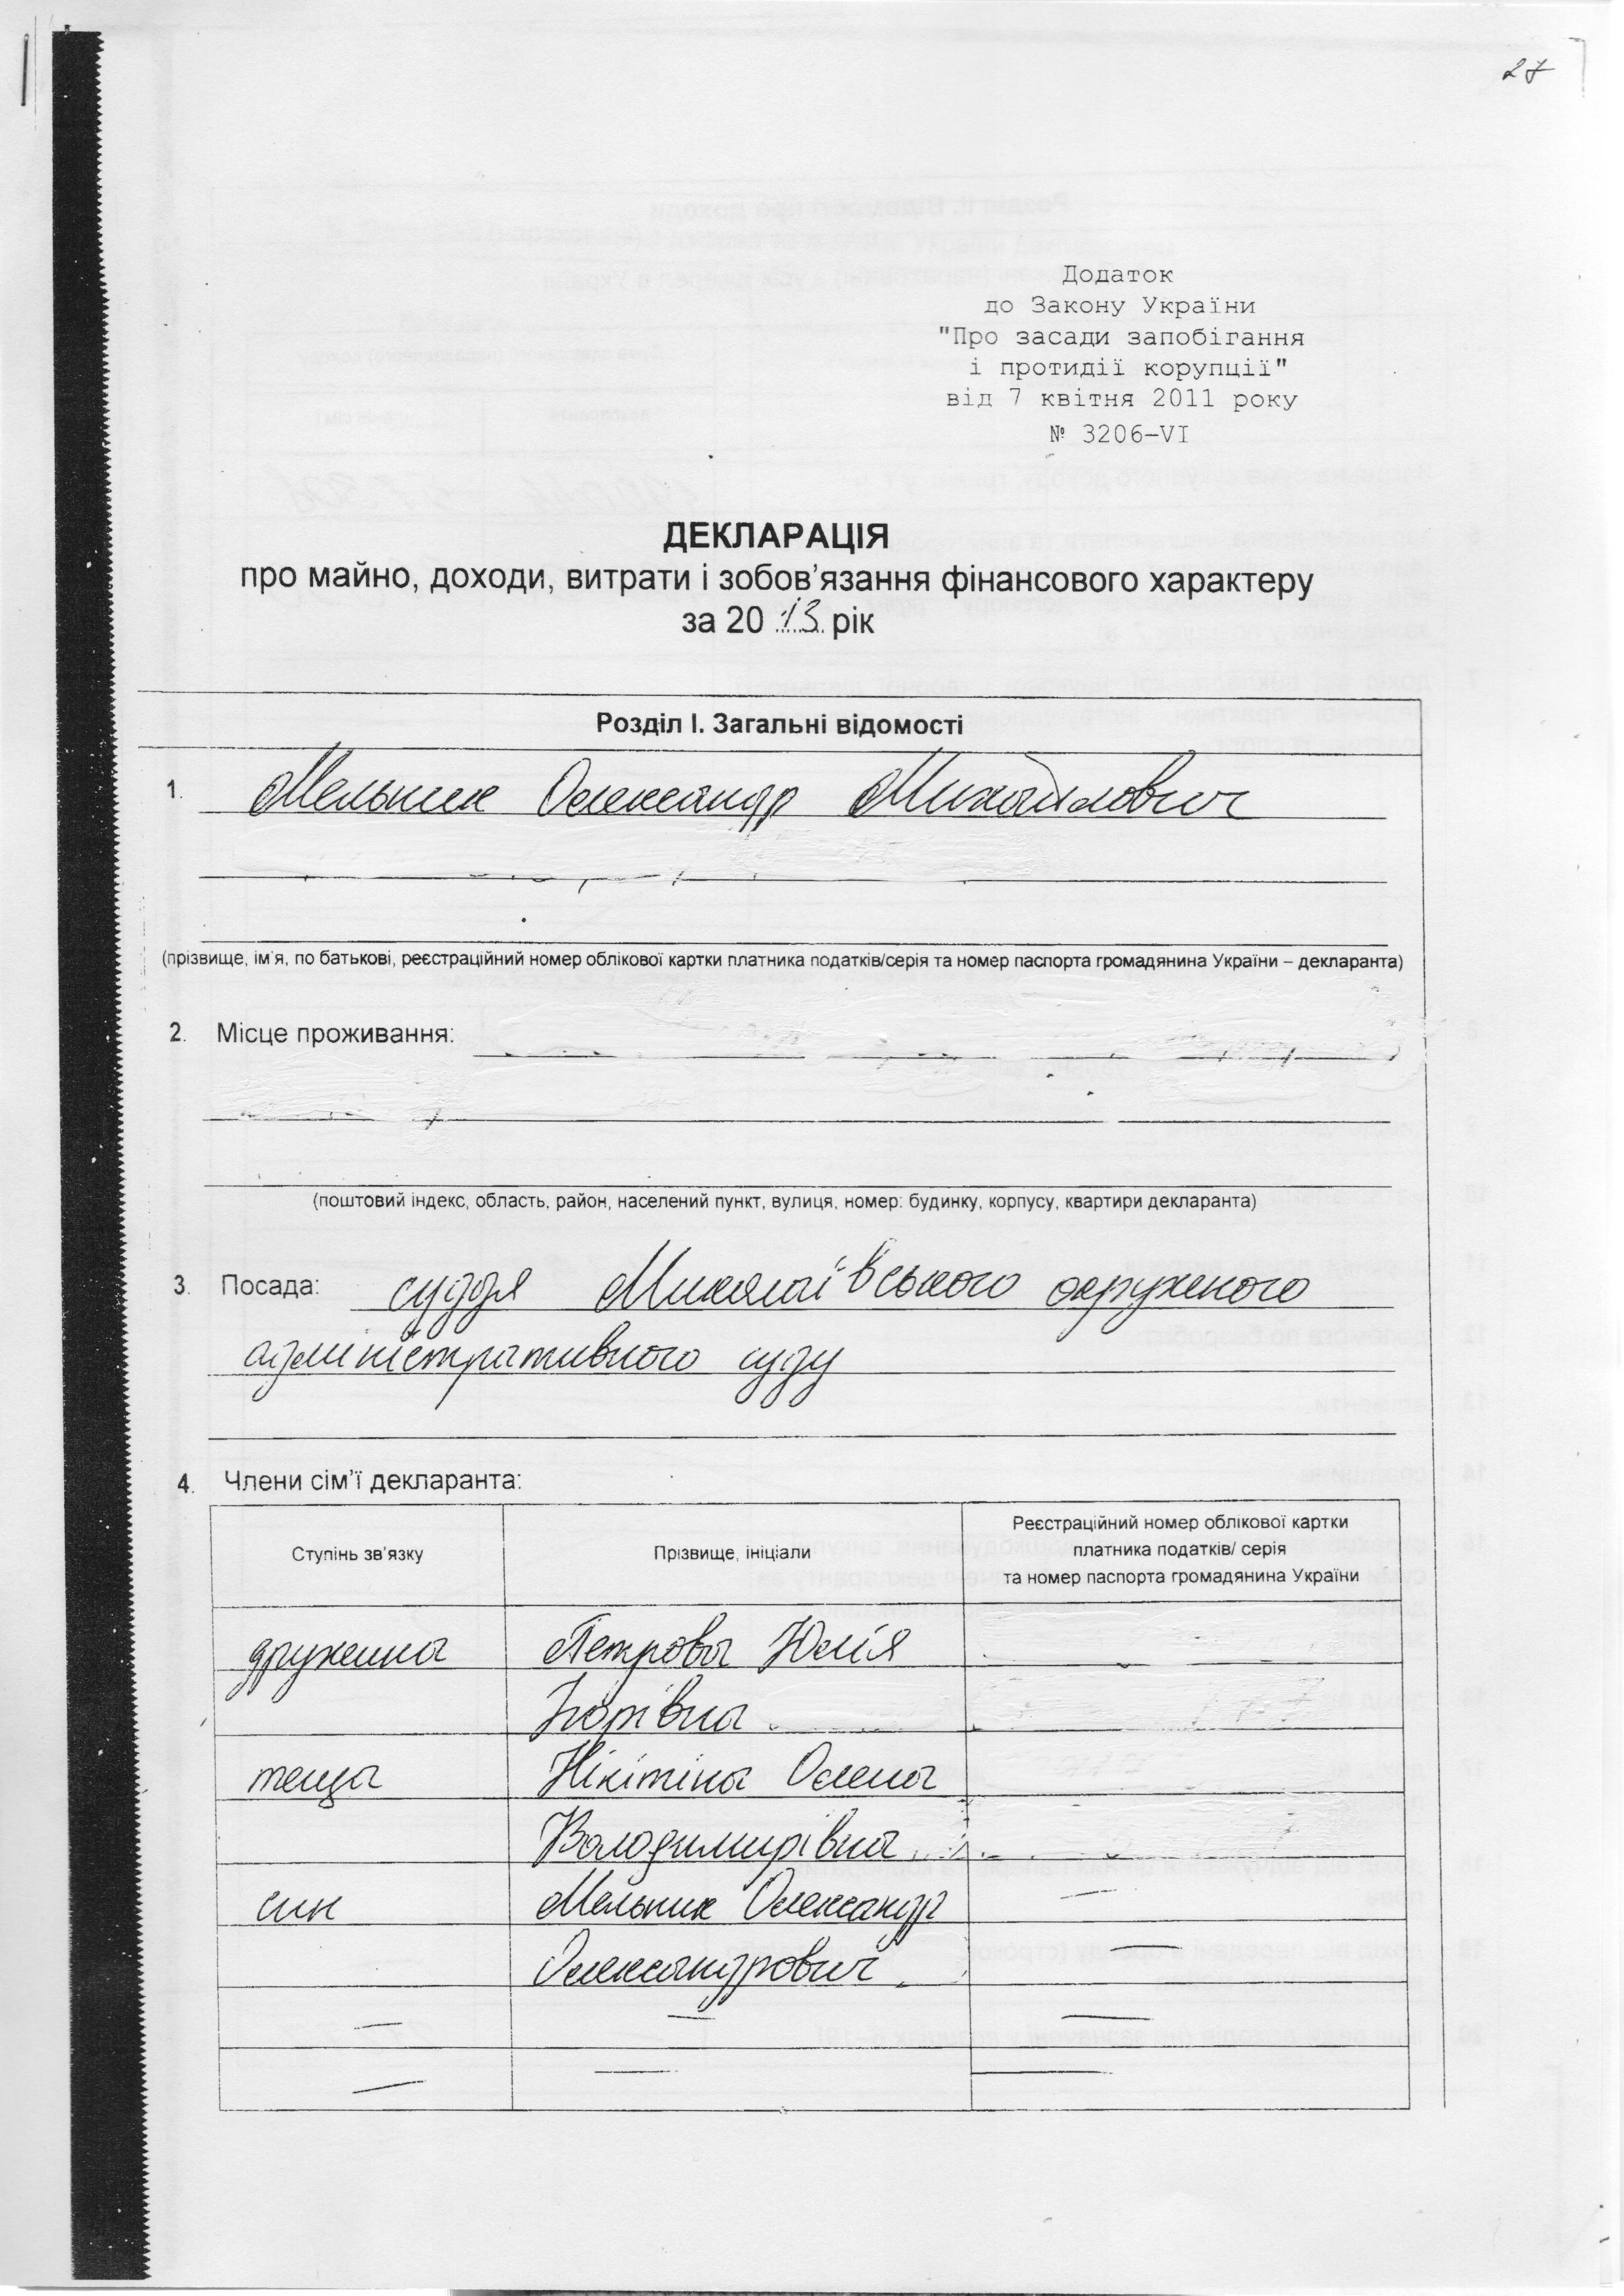 27
Додаток
до Закону України
"Про засади запобігання
і протидії корупції"
від 7 квітня 2011 року
№ 3206-VI
ДЕКЛАРАЦІЯ
про майно, доходи, витрати і зобов'язання фінансового характеру
за 20 13 рік
Розділ І. Загальні відомості
1. Мельник Олександр Михайлович
(прізвище, ім'я, по батькові, реєстраційний номер облікової картки платника податків/серія та номер паспорта громадянина України – декларанта)
2. Місце проживання:
(поштовий індекс, область, район, населений пункт, вулиця, номер: будинку, корпусу, квартири декларанта)
3. Посада: суддя Миколаївського окружного
адміністративного суду
4. Члени сім'ї декларанта:
Ступінь зв'язку
Прізвище, ініціали
Реєстраційний номер облікової картки
платника податків/ серія
та номер паспорта громадянина України
дружина Петрова Юлія
Ігорівна
теща Нікітіна Олена
Володимирівна
син Мельник Олександр —
Олександрович —
— — —
— — —